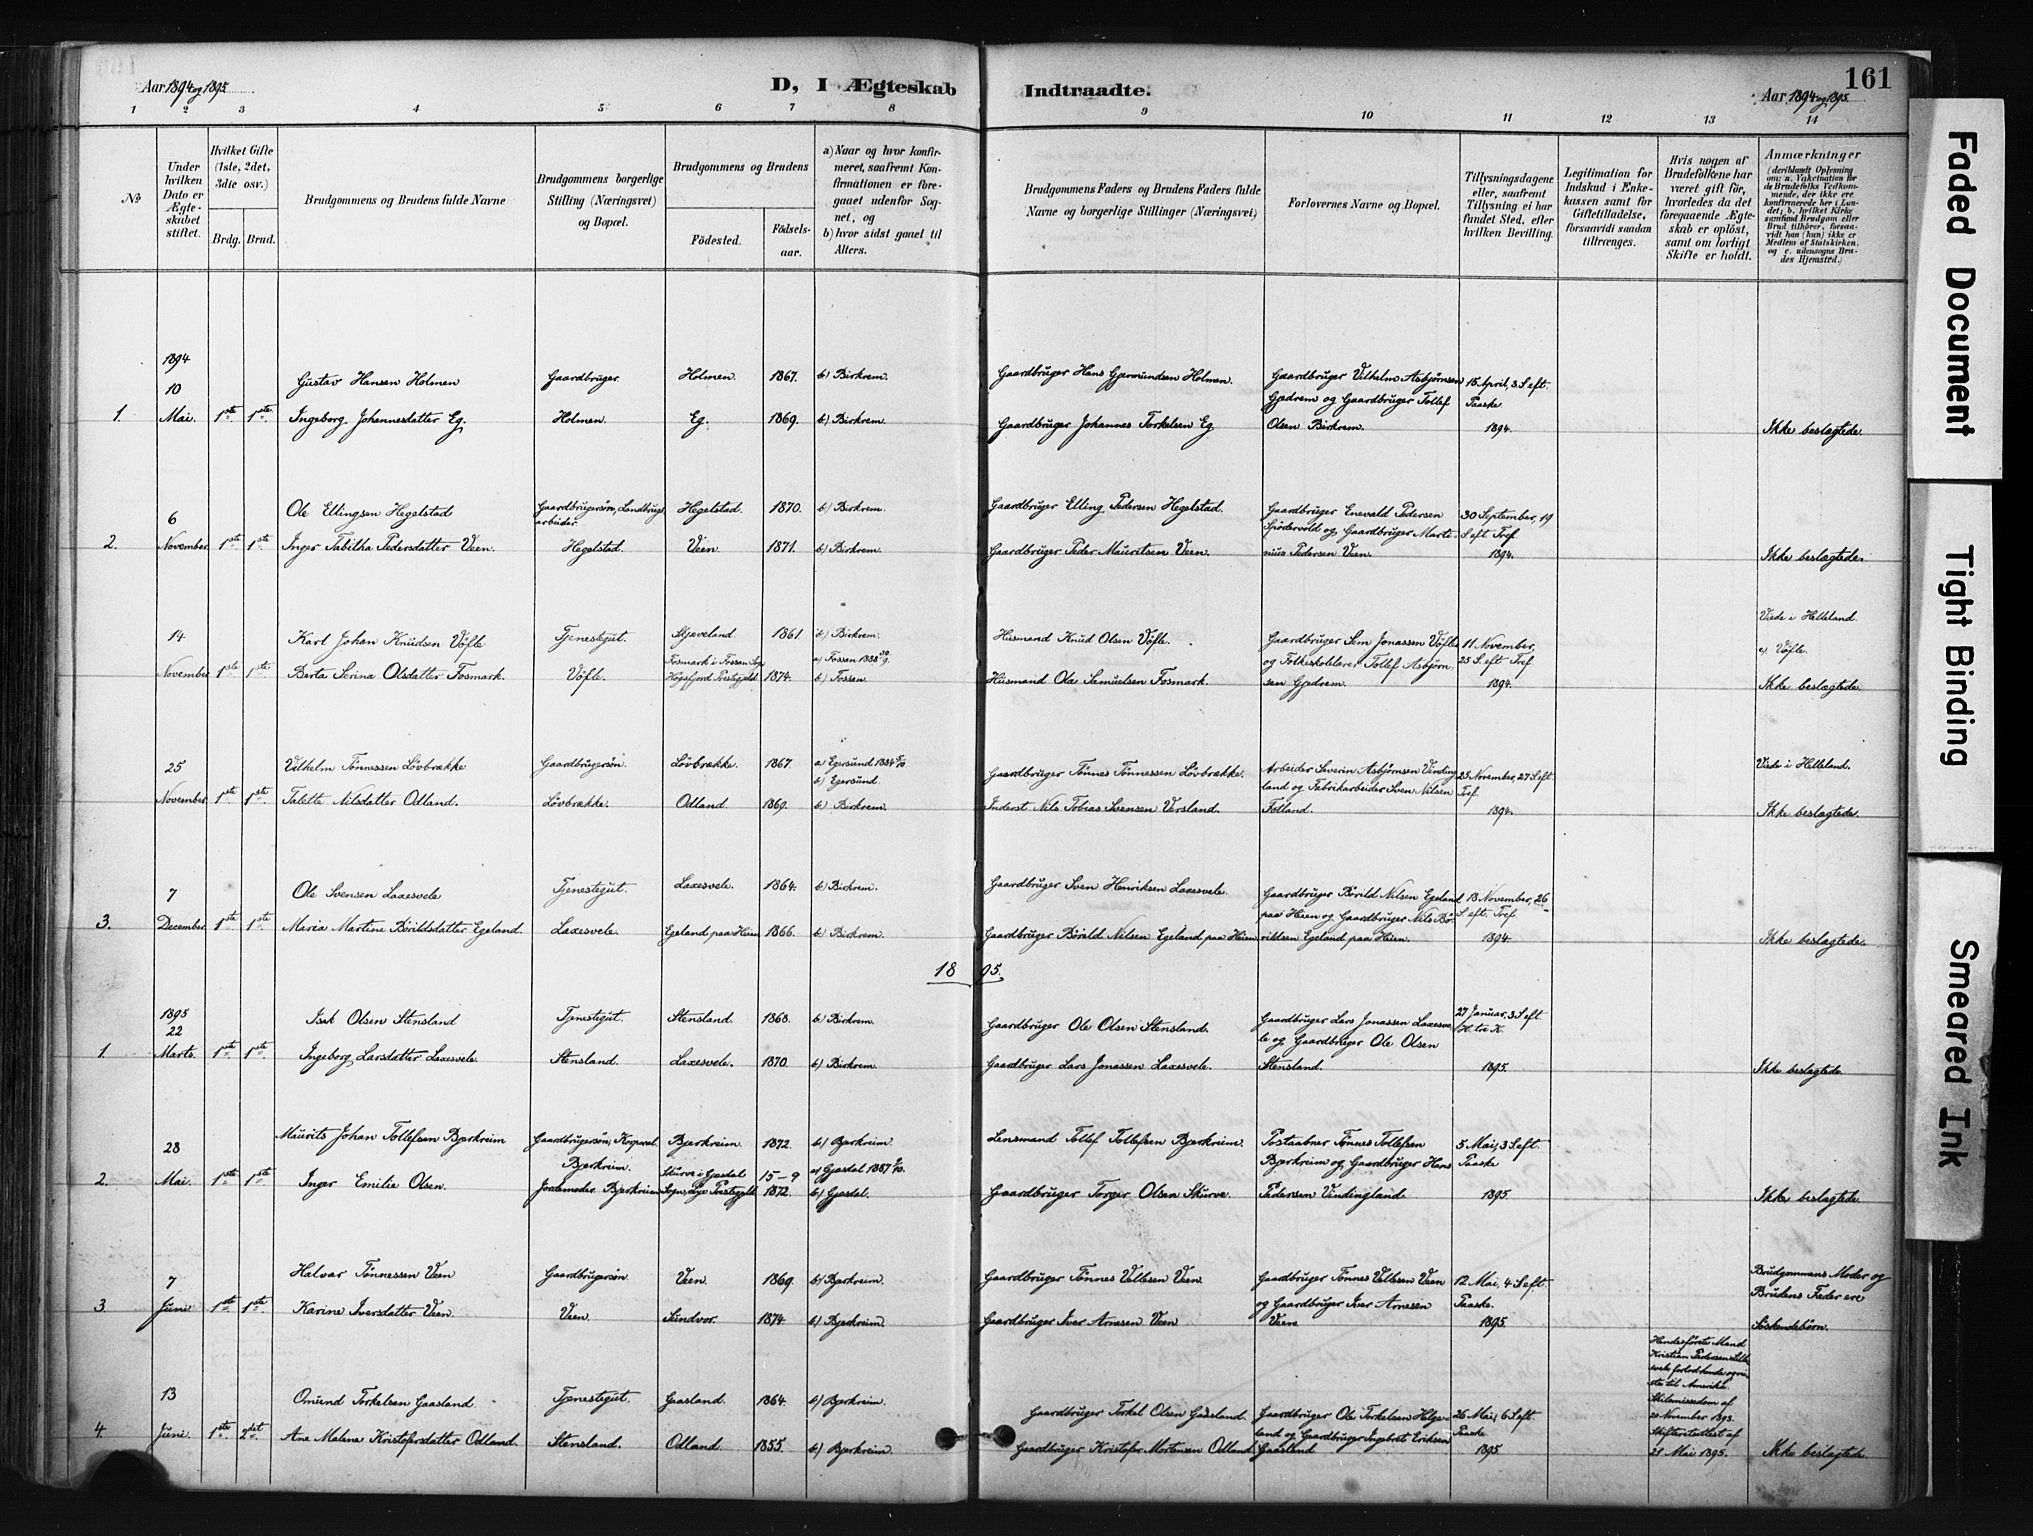 Aar 1894 og 1895
D, I Ægteskab Indtraadte.
Aar 1894 og 1895.
161
1 2 3 4 5 6 7 8 9 10 11 12 13 14
№
Under hvilken Dato er Ægteskabet stiftet.
Hvilket Gifte (1ste, 2det, 3die osv.)
Brdg. Brud.
Brudgommens og Brudens fulde Navne
Brudgommens borgerlige Stilling (Næringsvei) og Bopæl.
Brudgommens og Brudens
Födested.
Födsels-aar.
a) Naar og hvor konfirmeret, saafremt Konfirmationen er foregaaet udenfor Sognet, og
b) hvor sidst gaaet til Alters.
Brudgommens Faders og Brudens Faders fulde Navne og borgerlige Stillinger (Næringsvei)
Forlovernes Navne og Bopæl.
Tillysningsdagene eller, saafremt Tillysning ei har fundet Sted, efter hvilken Bevilling.
Legitimation for Indskud i Enkekassen samt for Giftetilladelse, forsaavidt saadan tiltrænges.
Hvis nogen af Brudefolkene har været gift för, hvorledes da det foregaaende Ægteskab er oplöst, samt om lovligt Skifte er holdt.
Anmærkninger (deriblandt Oplysning om: a. Vakcination for de Brudefolks Vedkommende, der ikke ere konfirmerede her i Landet; b. hvilket Kirkesamfund Brudgom eller Brud tilhörer, forsaavidt han (hun) ikke er Medlem af Statskirken, og c. udensogns Brudes Hjemsted.)
1894
10 Gustav Hansen Holmen Gaardbruger Holmen. 1867. b) Birkrem. Gaardbruger Hans Gjermundsen Holmen. Gaardbruger Vilhelm Asbjørnsen 15 April, 3 S. eft.
Gjedrem og Gaardbruger Tollef Paaske
1. Mai. 1ste 1ste Ingeborg Johannesdatter Eg. Holmen. Eg. 1869. b) Birkrem. Gaardbruger Johannes Torkelsen Eg Olsen Birkrem. 1894. Ikke beslægtede.
6 Ole Ellingsen Hegelstad Gaardbrugersøn, Landbrugs- Hegelstad. 1870. b) Birkrem. Gaardbruger Elling Pedersen Hegelstad. Gaardbruger Enevald Pedersen 30 September, 19
arbeider. Spødervold og Gaardbruger Marti- S. eft Tref
2. November 1ste 1ste Inger Tabitha Pedersdatter Veen. Hegelstad. Veen 1871. b) Birkrem. Gaardbruger Peder Mauritsen Veen. nius Pedersen Veen. 1894. Ikke beslægtede.
Viede i Helleland.
14 Karl Johan Knudsen Vøfle Tjenestegut. Skjæveland 1861. b) Birkrem. Husmand Knud Olsen Vøfle. Gaardbruger Sem Jonassen Vøfle 11 November,
Fosmark i Fossan Sogn a) Fossan 1888 og Folkeskolelærer Tollef Asbjørn- 25 S. eft Tref c) Vøfle.
November 1ste 1ste Berta Serina Olsdatter Fosmark. Vøfle. Høgsfjord Prestegjeld 1874. b) Fossan. Husmand Ola Samuelsen Fosmark. sen Gjedrem. 1894. Ikke beslægtede.
25 Vilhelm Tønnessen Løvbrække Gaardbrugersøn. Løvbrække. 1867. a) Egersund 1884 Gaardbruger Tønnes Tønnessen Løvbrække. Arbeider Severin Asbjørnsen Vinding- 25 November, 27 S. eft Viede i Helleland.
b) Egersund land og Fabrikarbeider Sven Nilsen Tref.
November 1ste 1ste Talette Nilsdatter Odland. Løvbrække. Odland 1869. b) Birkrem. Inderst Nils Tobias Svensen Versland. Fotland. 1894. Ikke beslægtede.
7 Ole Svensen Laxesvele Tjenestegut. Laxesvele. 1864. b) Birkrem. Gaardbruger Sven Henriksen Laxesvele. Gaardbruger Børild Nilsen Egeland 18 November, 26
paa Heien og Gaardbruger Nils Bø- S. eft. Tref.
3. December 1ste 1ste Maria Martine Børildsdatter Egeland. Laxesvele. Egeland paa Heien 1866. b) Birkrem. Gaardbruger Børild Nilsen Egeland paa Heien rildsen Egeland paa Heien. 1894 Ikke beslægtede.
1895.
1895
22 Isak Olsen Stensland Tjenestegut. Stensland. 1868. b) Birkrem. Gaardbruger Ole Olsen Stensland. Gaardbruger Lars Jonassen Laxesve- 27 Januar, 3 S. eft
le og Gaardbruger Ole Olsen H. tr. K.
1. Marts. 1ste 1ste Ingeborg Larsdatter Laxesvele. Stensland. Laxesvele. 1870. b) Birkrem. Gaardbruger Lars Jonassen Laxesvele. Stensland. 1895. Ikke beslægtede.
28 Maurits Johan Tollefsen Bjerkreim Gaardbrugersøn, Korporal. Bjerkreim. 1872. b) Bjerkreim. Lensmand Tollef Tollefsen Bjerkreim. Postaabner Tønnes Tollefsen 5 Mai, 3 S. eft
Bjerkreim. Skurve i Gjesdal 15-9 a) Gjesdal 1887 Bjerkreim og Gaardbruger Hans Paaske
2. Mai. 1ste 1ste Inger Emilie Olsen. Jordemoder Bjerkreim Sogn, Lye Prestegjeld 1872. b) Gjesdal. Gaardbruger Torger Olsen Skurve Pedersen Vindingland. 1895. Ikke beslægtede
7 Halvar Tønnessen Veen Gaardbrugersøn Veen. 1869. b) Bjerkreim. Gaardbruger Tønnes Vellesen Veen. Gaardbruger Tønnes Vellesen Veen 12 Mai, 4 S. eft Brudgommens Moder og
og Gaardbruger Iver Arnesen Paaske. Brudens Fader ere
3 Juni 1ste 1ste Karine Iversdatter Veen. Veen. Sundvor. 1874 b) Bjerkreim. Gaardbruger Iver Arnesen Veen Veen 1895. Søskendebørn.
Hendes første Mand
Kristian Pedersen
forlod hende og rei-
ste til Amerika.
13 Omund Torkelsen Gaasland Tjenestegut. Gaasland. 1864. b) Bjerkreim. Gaardbruger Torkel Olsen Gaasland. Gaardbruger Ole Torkelsen Helge- 26 Mai, 6 S. eft Skilsmissedom af
land og Gaardbruger Ingebret Eriksen Paaske 20 November 1893.
Skifteattest af
4. Juni. 1ste 2det Ane Malene Kristofersdatter Odland. Stensland. Odland. 1855. b) Bjerkreim. Gaardbruger Kristofer Mortensen Odland Gaasland 1895 21 Mai 1895. Ikke beslægtede.
Faded Document
Tight Binding
Smeared Ink